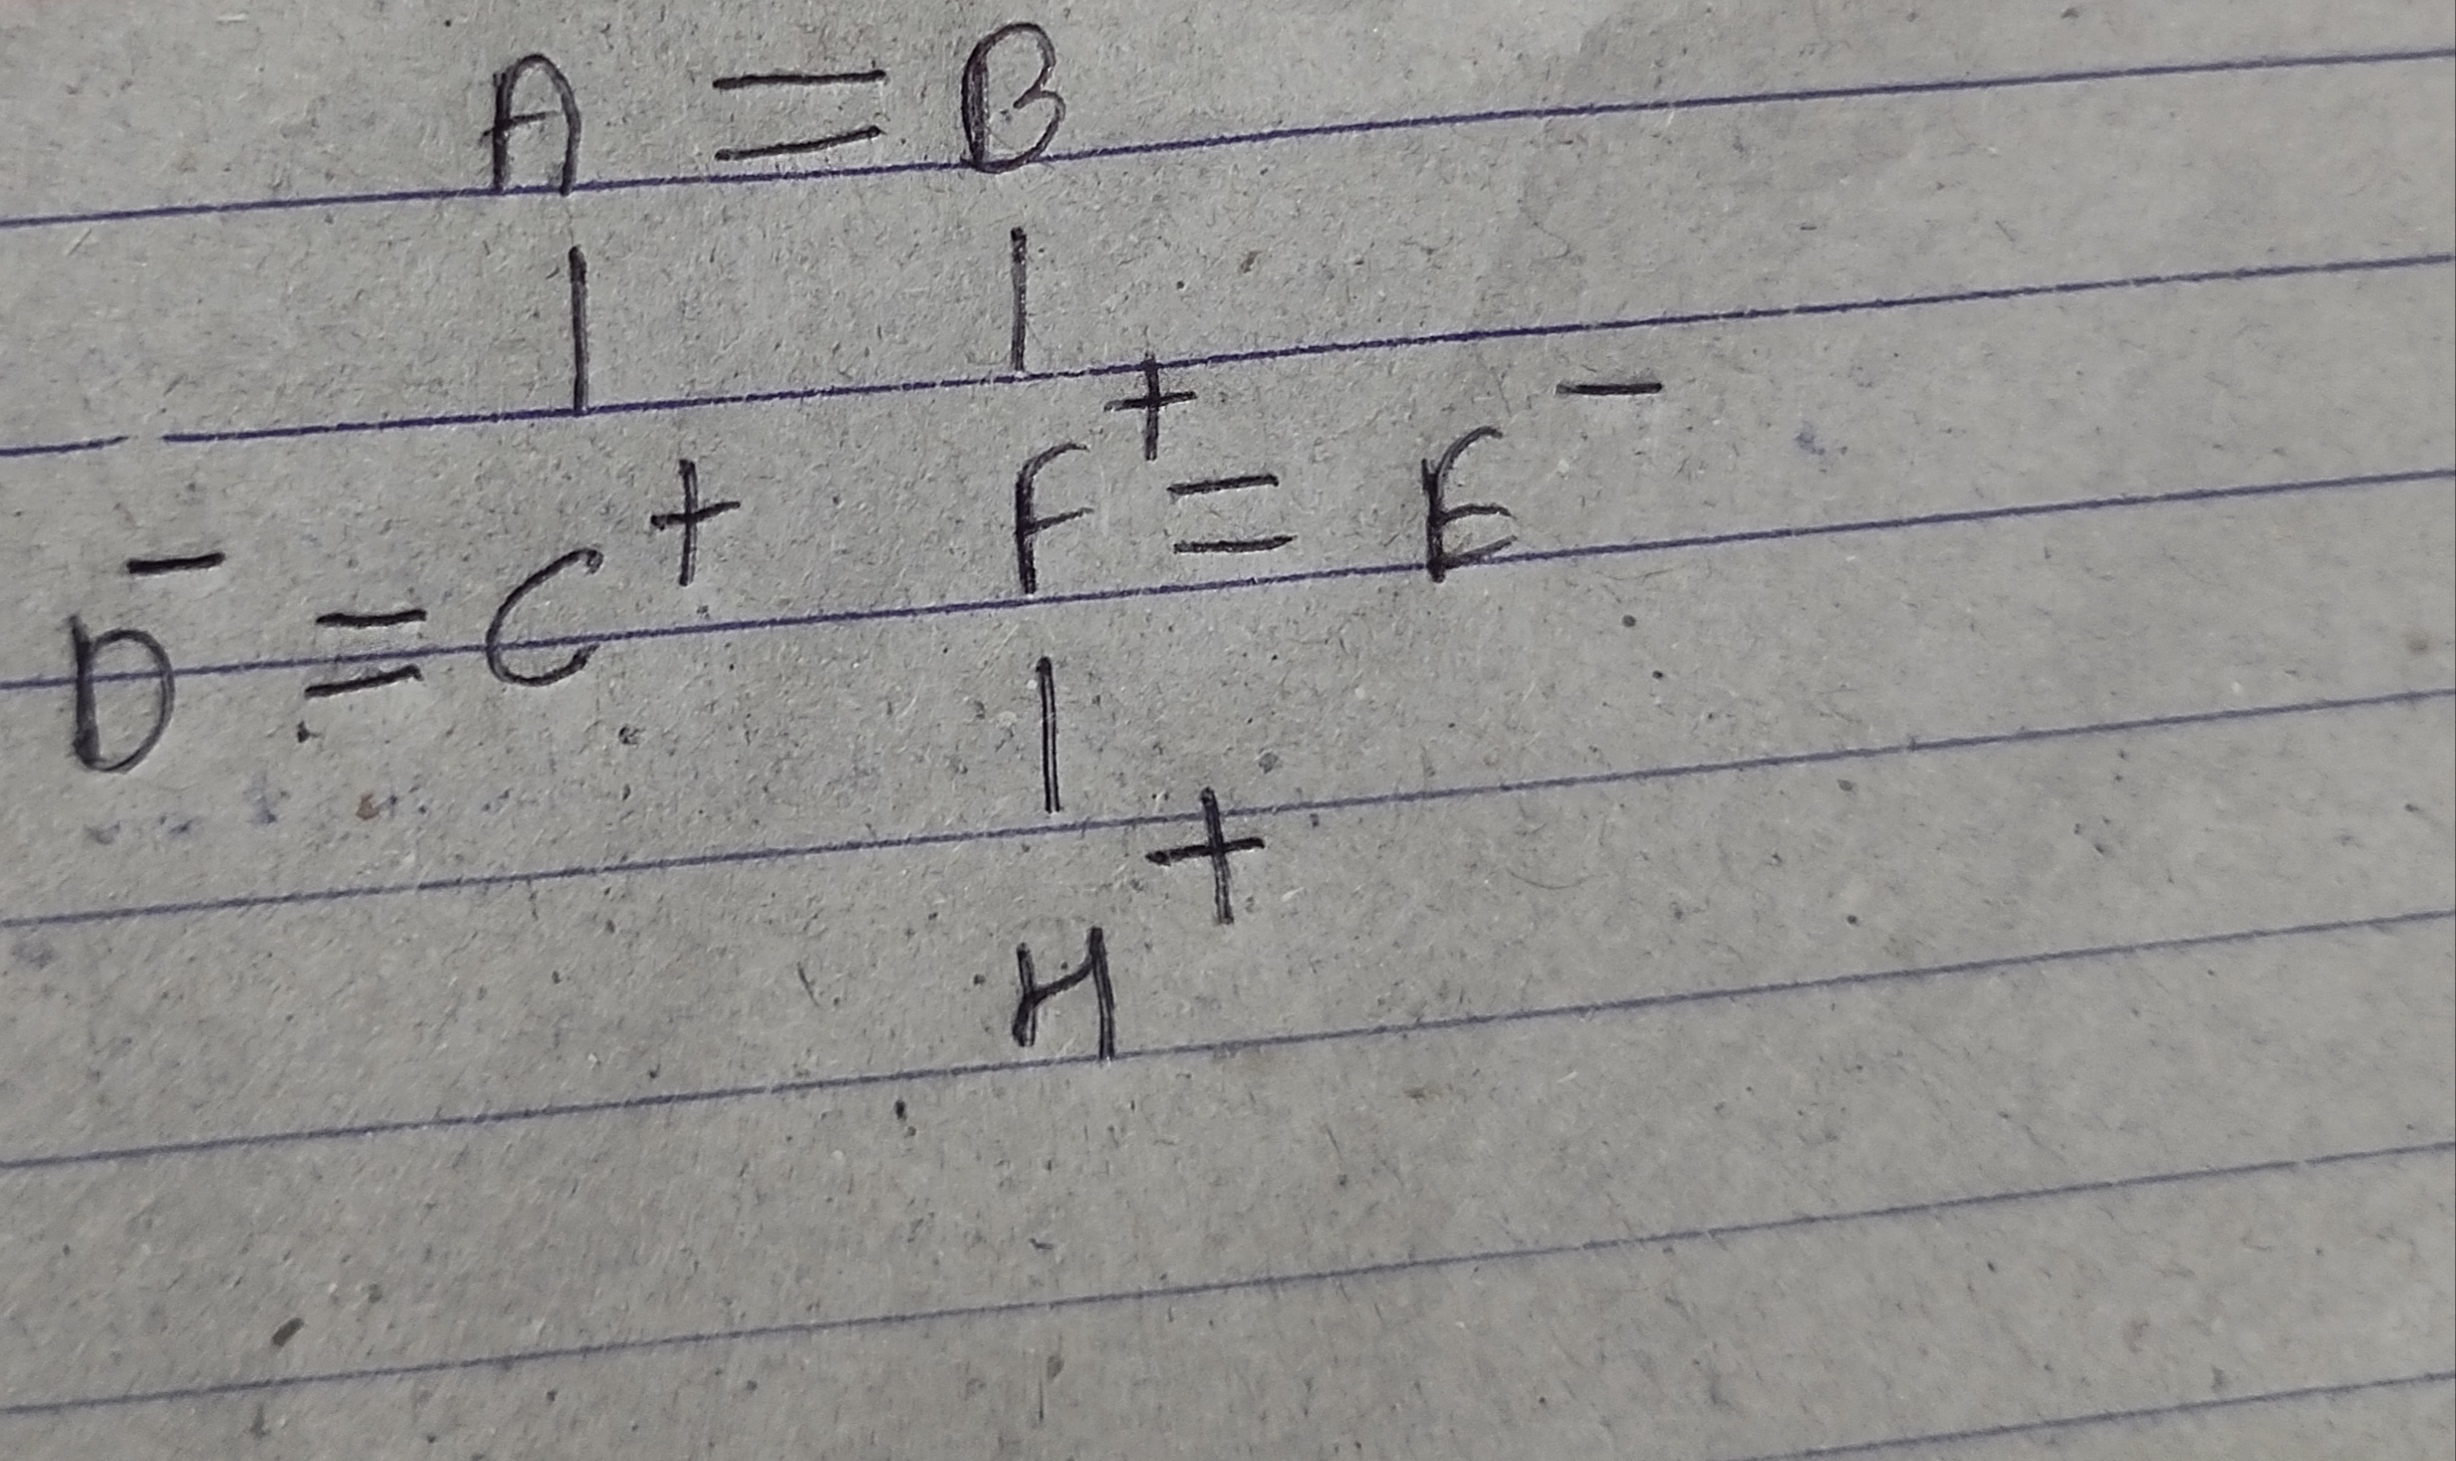 A = B
| |
D⁻ = C⁺ F⁺ = E⁻
|
H⁺